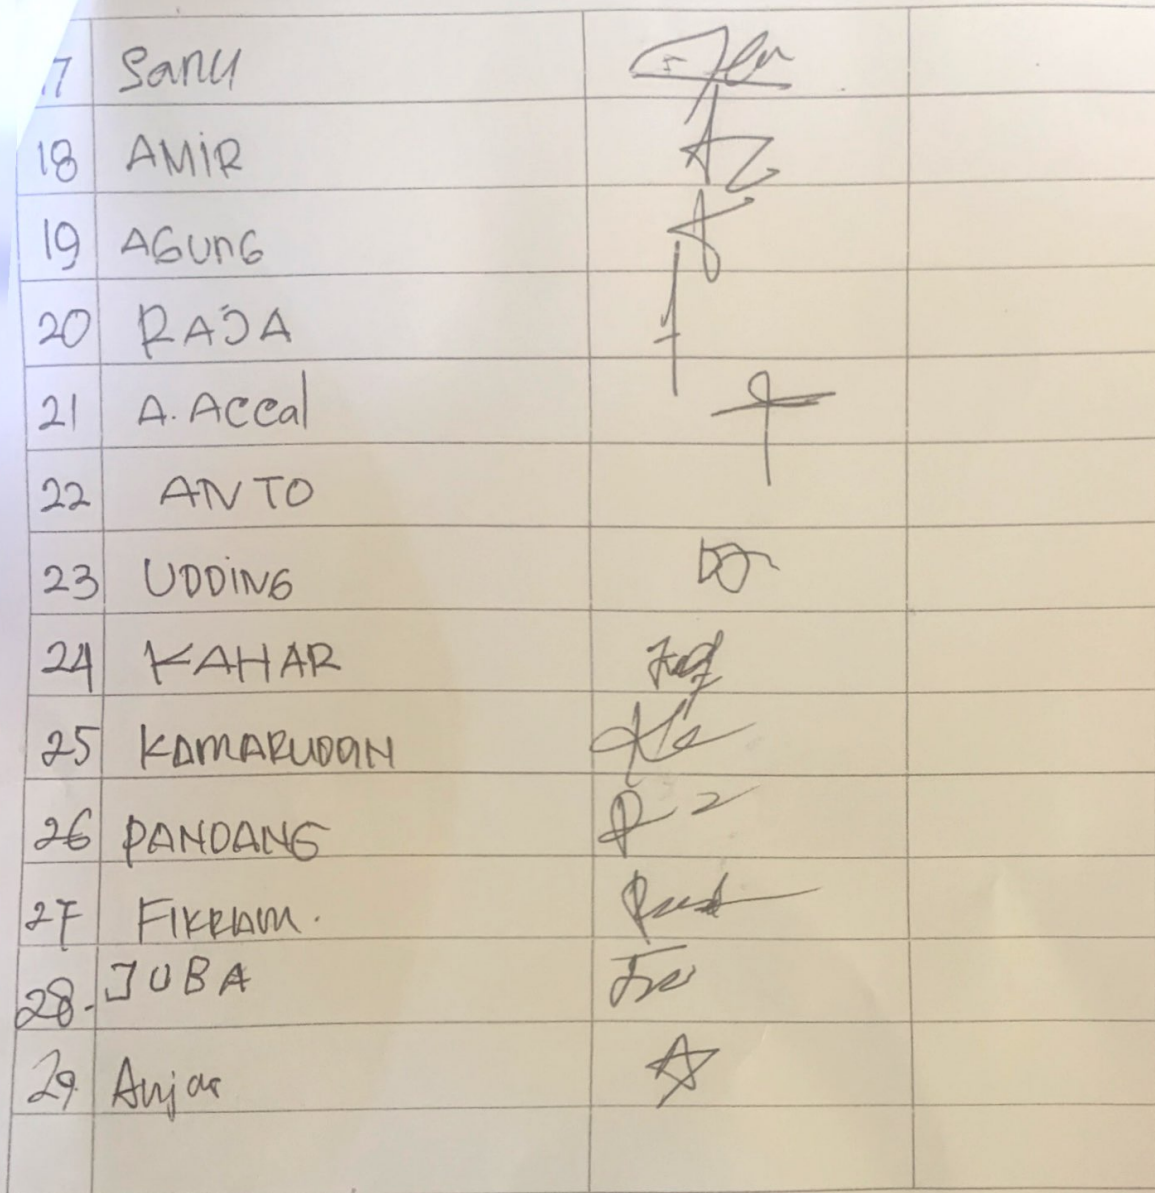 17 Sanu
18 AMIR
19 AGUNG
20 RAJA
21 A. Accal
22 ANTO
23 UDDING
24 KAHAR
25 KAMARUDDIN
26 PANDANG
27 FIKRAM.
28. JUBA
29 Anjas